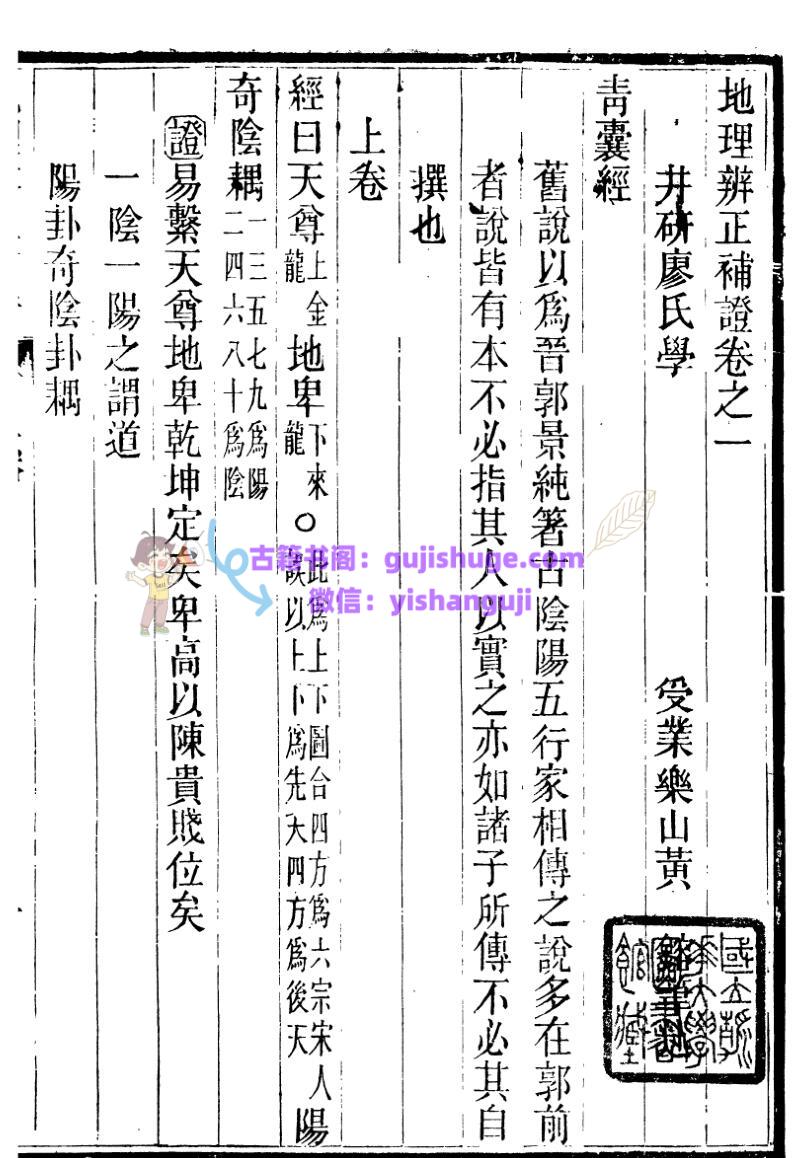 地理辨正補證卷之一
井研廖氏學　受業樂山黃
青囊經
舊說以爲晉郭景純箸古陰陽五行家相傳之說多在郭前
者說皆有本不必指其人以實之亦如諸子所傳不必其自
撰也
上卷
經曰天尊上金龍地卑下來龍○此爲上下圖台四方爲六宗宋人故以上下爲先天四方爲後天陽
奇陰耦一三五七九爲陽二四六八十爲陰
證易繫天尊地卑乾坤定矣卑高以陳貴賤位矣
一陰一陽之謂道
陽卦奇陰卦耦
古籍书阁：gujishuge.com
微信：yishanguji